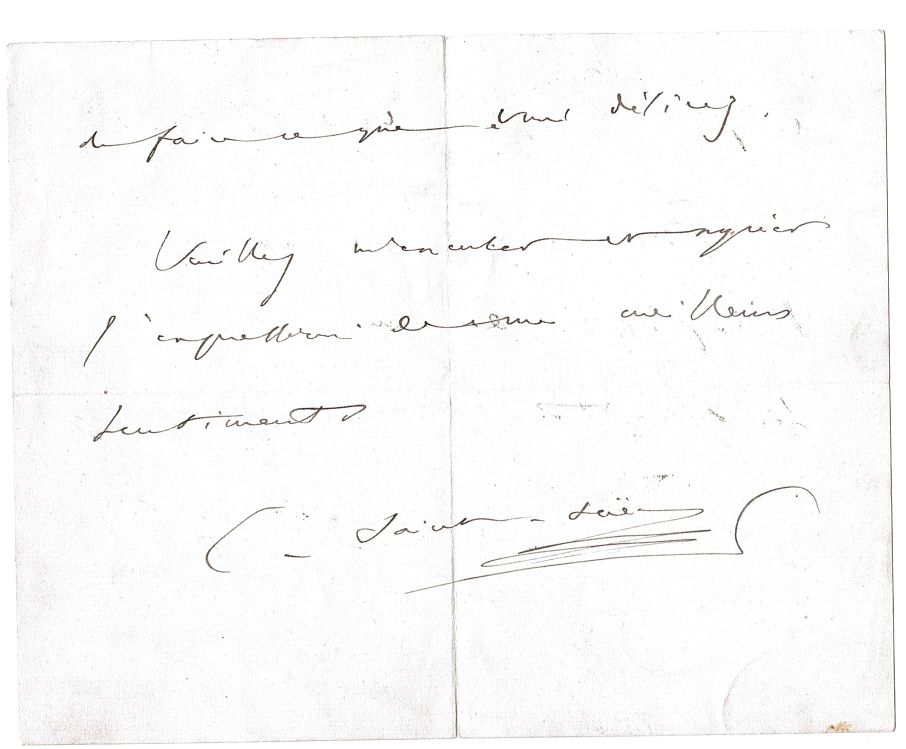 de faire ce que vous désirez.
Veuillez m'excuser et agréer
l'expression de mes meilleurs
sentiments
C. Saint-Saëns